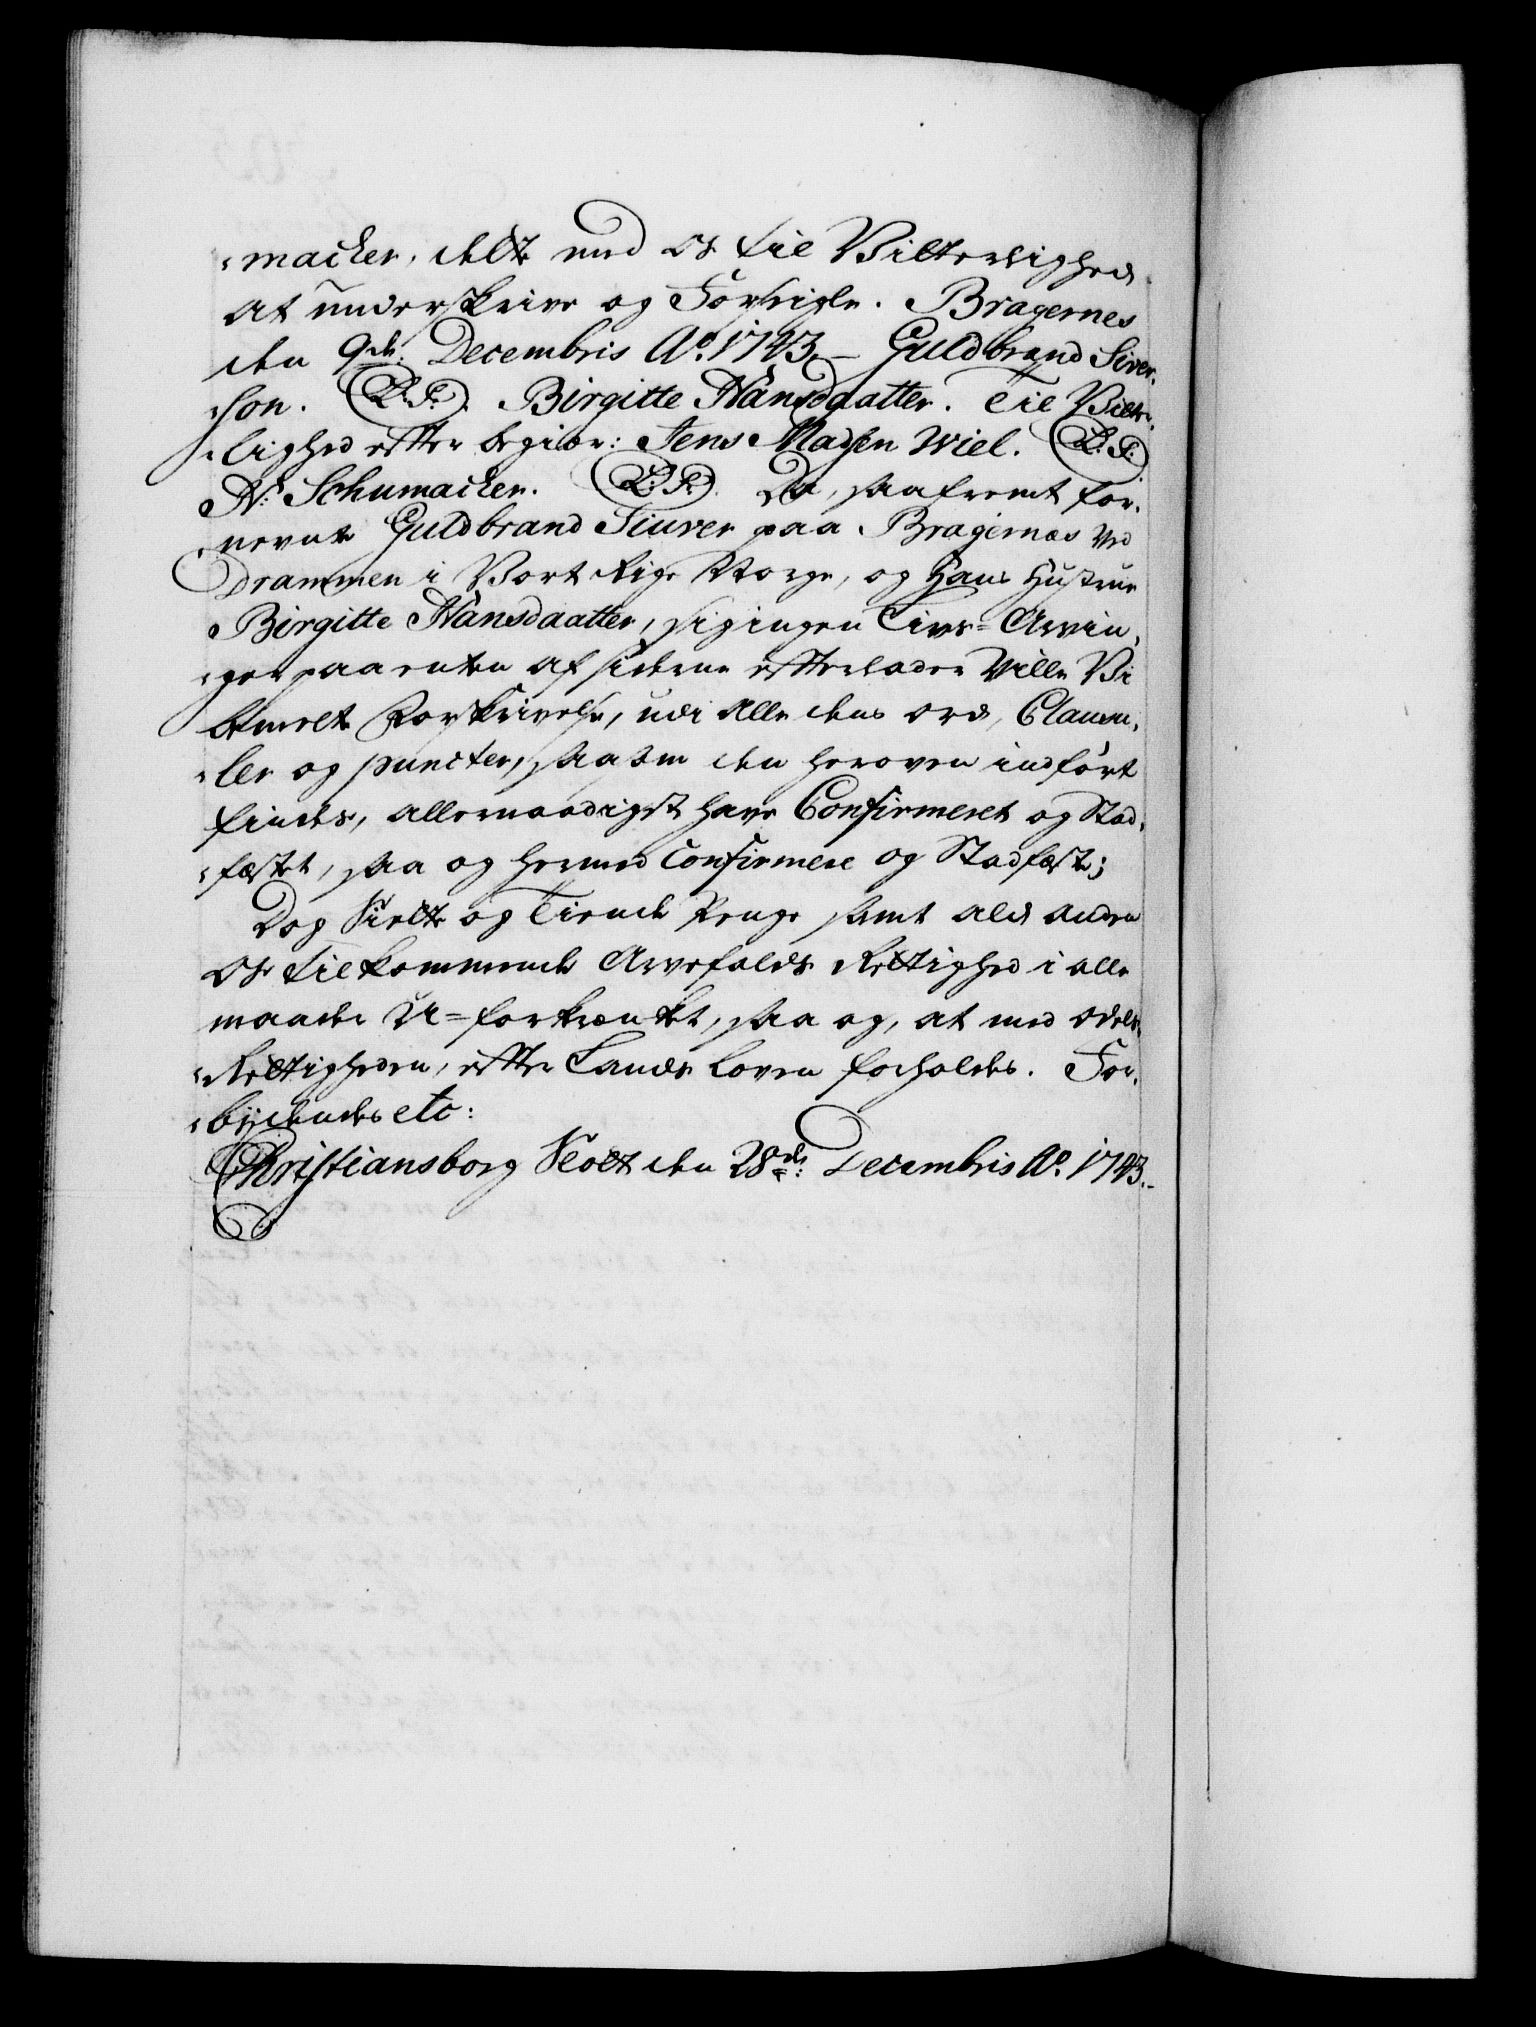 macher, dette med os til Vitterlighed
at underskrive og Forseigle. Bragernes
den 9de Decembris Ao. 1743 - Guldbrand Siver-
son. (L.S.) Birgitte Hansdaatter. Til Vitter-
lighed efter begiær: Jens Madsen Wiel. (L.S.)
N: Schumacher. (L.S.) Da, saafremt for-
nevnte Guldbrand Siuver paa Bragernæs ved
Drammen i Vort Rige Norge, og Hans Hustrue
Birgitte Hansdaatter, sig ingen Livs-Arvin-
ger paa enten af siderne efterlader Ville Vi
bemelte Forskrivelse, udi alle dens ord, Clausu-
ler og puncter, saasom den heroven indført
findes, allernaadigst have Confirmeret og Stad-
fæstet, saa og hermed Confirmere og Stadfæste;
Dog Siette og Tiende Penge samt ald anden
Os Tilkommende Arvefalds Rettighed i alle
maader U-forkrænket, saa og, at med odels-
Rettigheden, efter Lands Loven forholdes. For-
bydendes etc:
Christiansborg Slott den 28de Decembris Ao. 1743.-